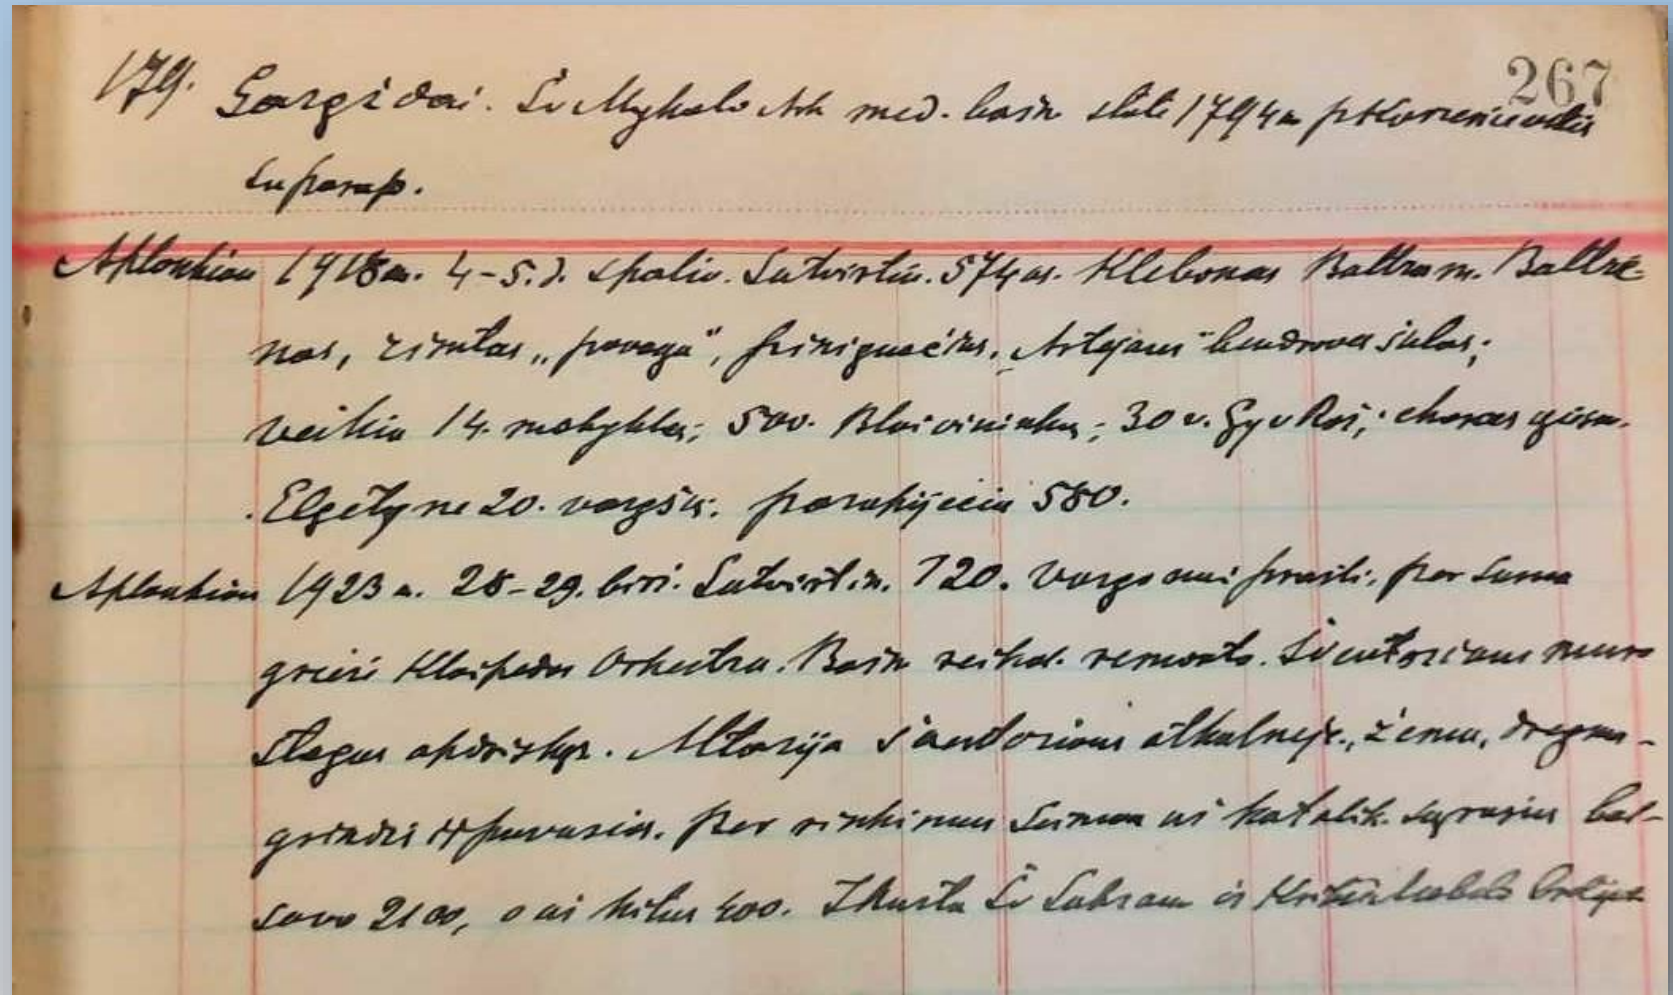 267
179. Gargždai. Šv Mykolo Ark med. bažn. statė 1794 m
su parap.
Aplankiau 1918 m. 4-5. d. spalio. Sutvirtin. 574 as. Klebonas Baltram. Baltrė-
nas, rimtas, „pavaga", „Artojaus" bendrovei šulas;
veikia 14. mokyklos; 500. Blaivininkų; 30 v. Gyv Rož; choras gieda.
Elgetyne 20. vargšų. parapijiečių 580.
Aplankiau 1923 m. 28-29. birž. Sutvirtin. 720. Vargonai prasti. per Sumą
griežė Klaipėdos Orkestra. Bažn reikal. remonto. Šventoriaus muro
stogas apdriskęs. Altarija šventoriaus atkalnėje, žema, drėgna-
grindis supuvusios. Per rinkimus Seiman už katalik. sąrašus bal-
savo 2100, o už kitus 400. Įkurta Šv